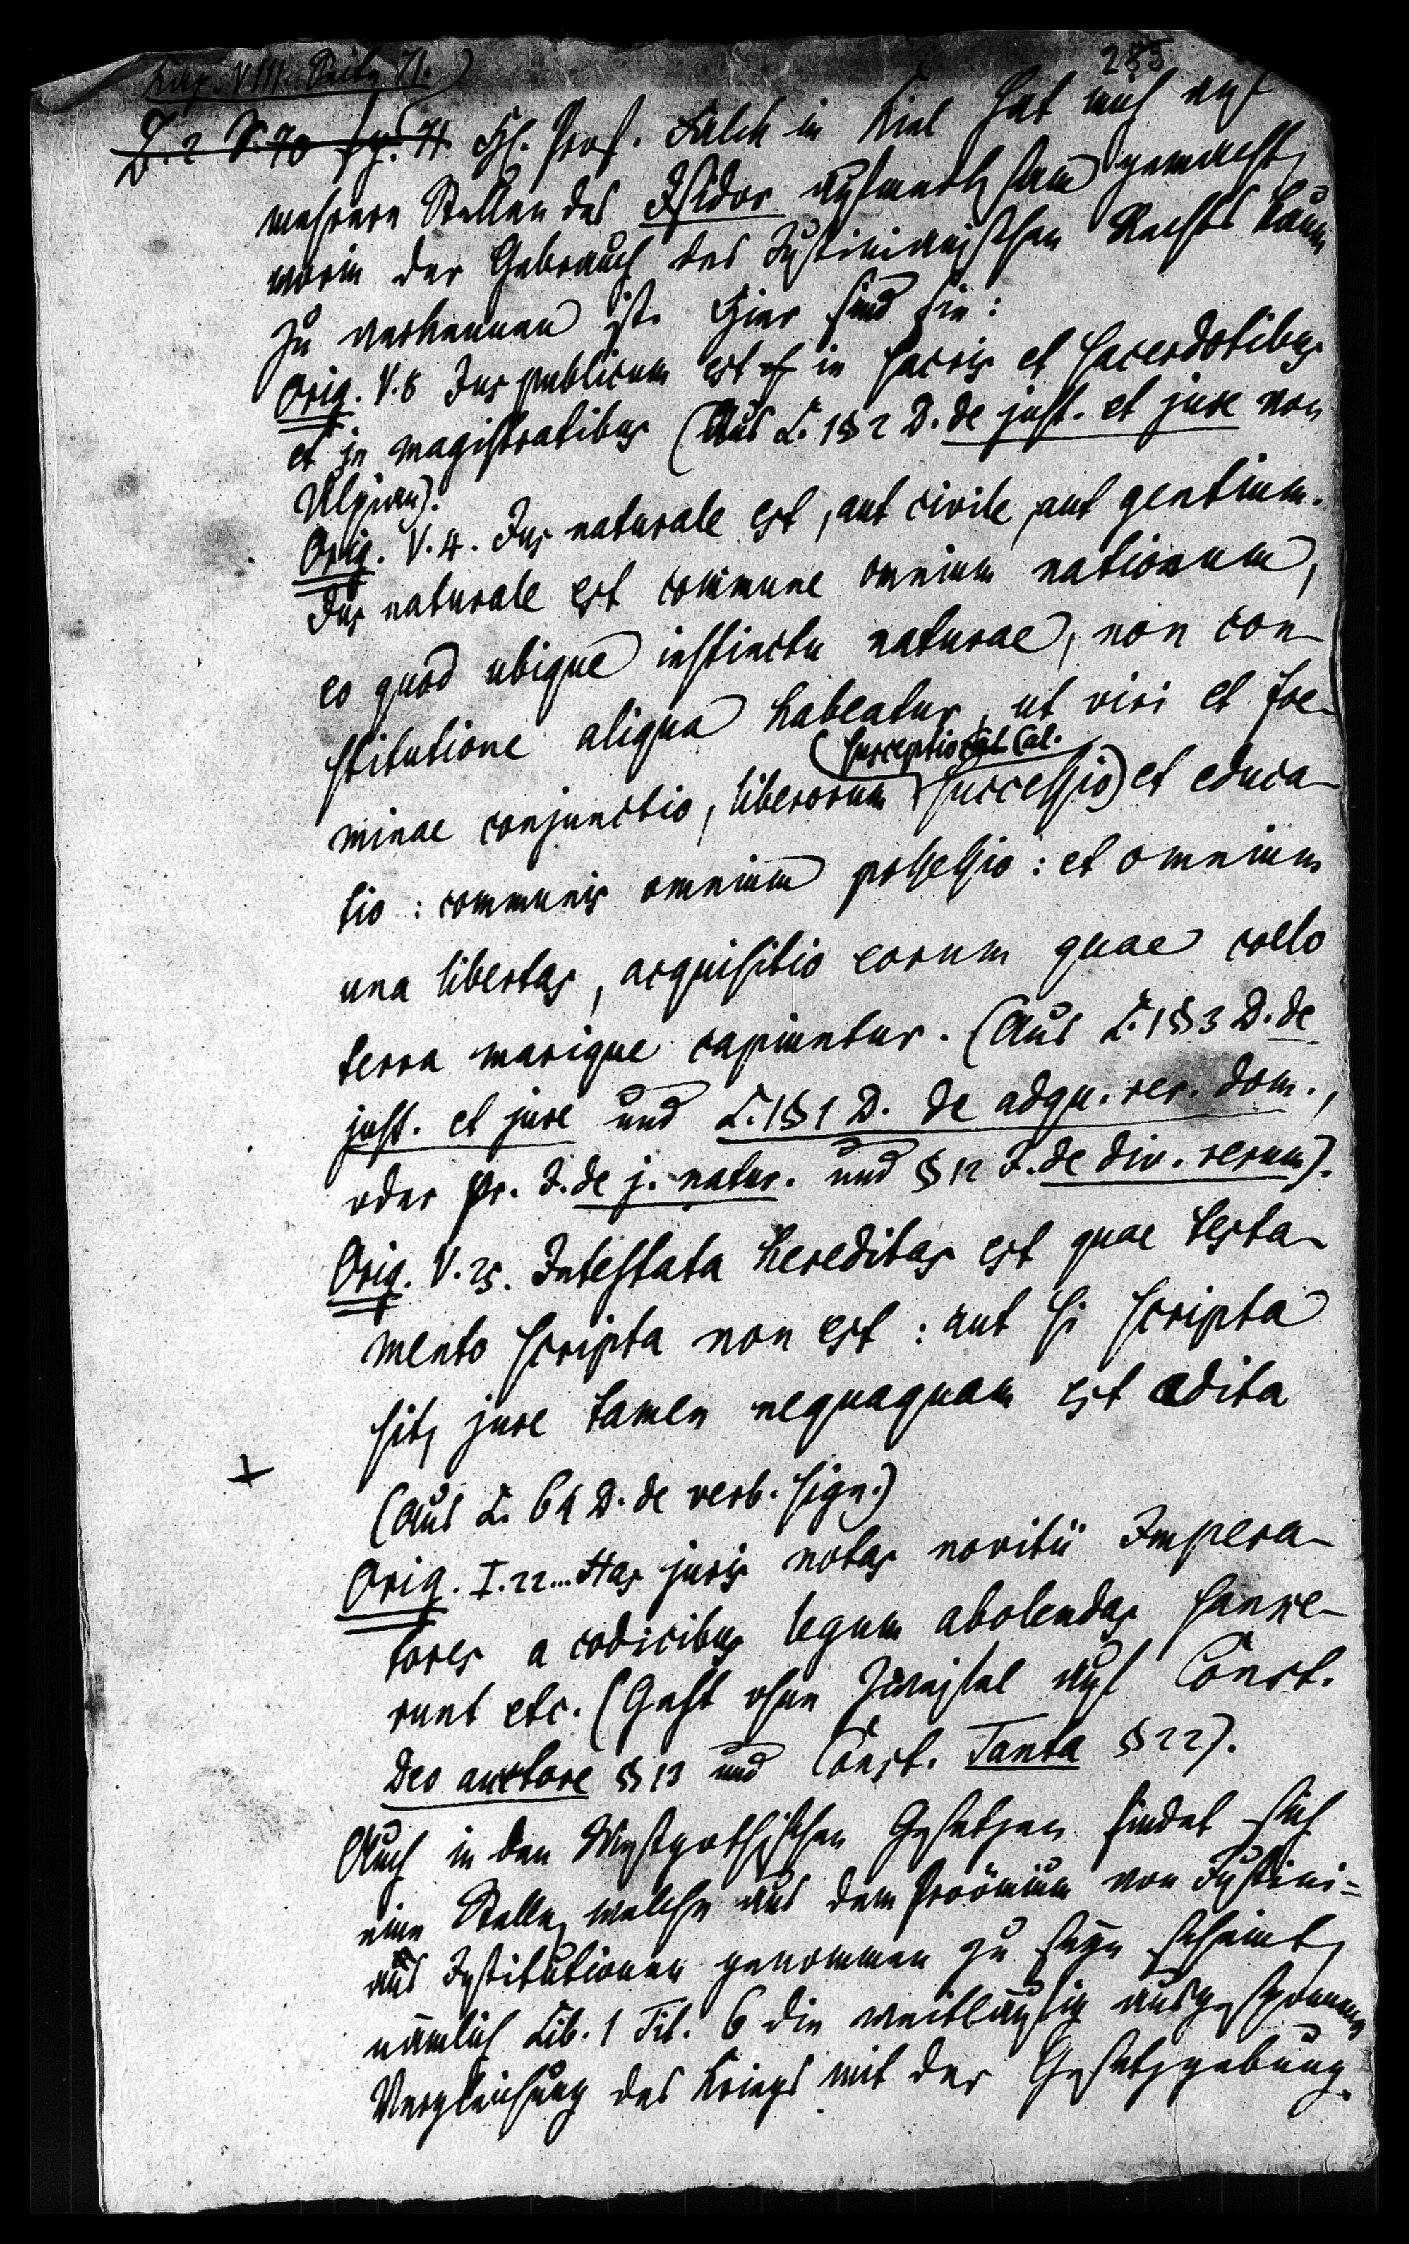 Kap. VIII. Seite 71.)
285
B. 2 S. 70 fg. 71. H. Prof. Falck in Kiel hat mich auf
mehrere Stellen des Isidor aufmerksam gemacht,
worin der Gebrauch des Justinianischen Rechts kaum
zu verkennen ist. Hier sind sie:
Orig. V. 8 Jus publicum est in sacris et sacerdotibus
et in magistratibus (Aus L. 1 § 2 D. de just. et jure von
Ulpian).
Orig. V. 4. Jus naturale est, aut civile, aut gentium.
Jus naturale est commune omnium nationum,
eo quod ubique instinctu naturae, non con-
stitutione aliqua habeatur, ut viri et foe-
(susceptio Col. Cal.
minae conjunctio, liberorum successio) et educa-
tio: communis omnium possessio: et omnium
una libertas, acquisitio eorum quae coelo
terra marique capiuntur. (Aus L. 1 § 3 D. de
just. et jure und L. 1 § 1 D. de adqu. rer. dom.,
oder pr. J. de j. natur. und § 12 J. de div. rerum).
Orig. V. 25. Intestata hereditas est quae testa-
mento scripta non est: aut si scripta
sit, jure tamen nequaquam est adita
+
(Aus L. 64 D. de verb. sign.)
Orig. I. 22... Has juris notas novitii Impera-
tores a codicibus legum abolendas sanxe-
runt etc. (Geht ohne Zweifel auf Const.
Deo auctore § 13 und Const. Tanta § 22).
Auch in den Westgothischen Gesetzen findet sich
eine Stelle, welche aus dem Proömium von Justini-
ans Institutionen genommen zu seyn scheint,
nämlich Lib. 1 Tit. 6 die weitläufig ausgesponnene
Vergleichung des Kriegs mit der Gesetzgebung.